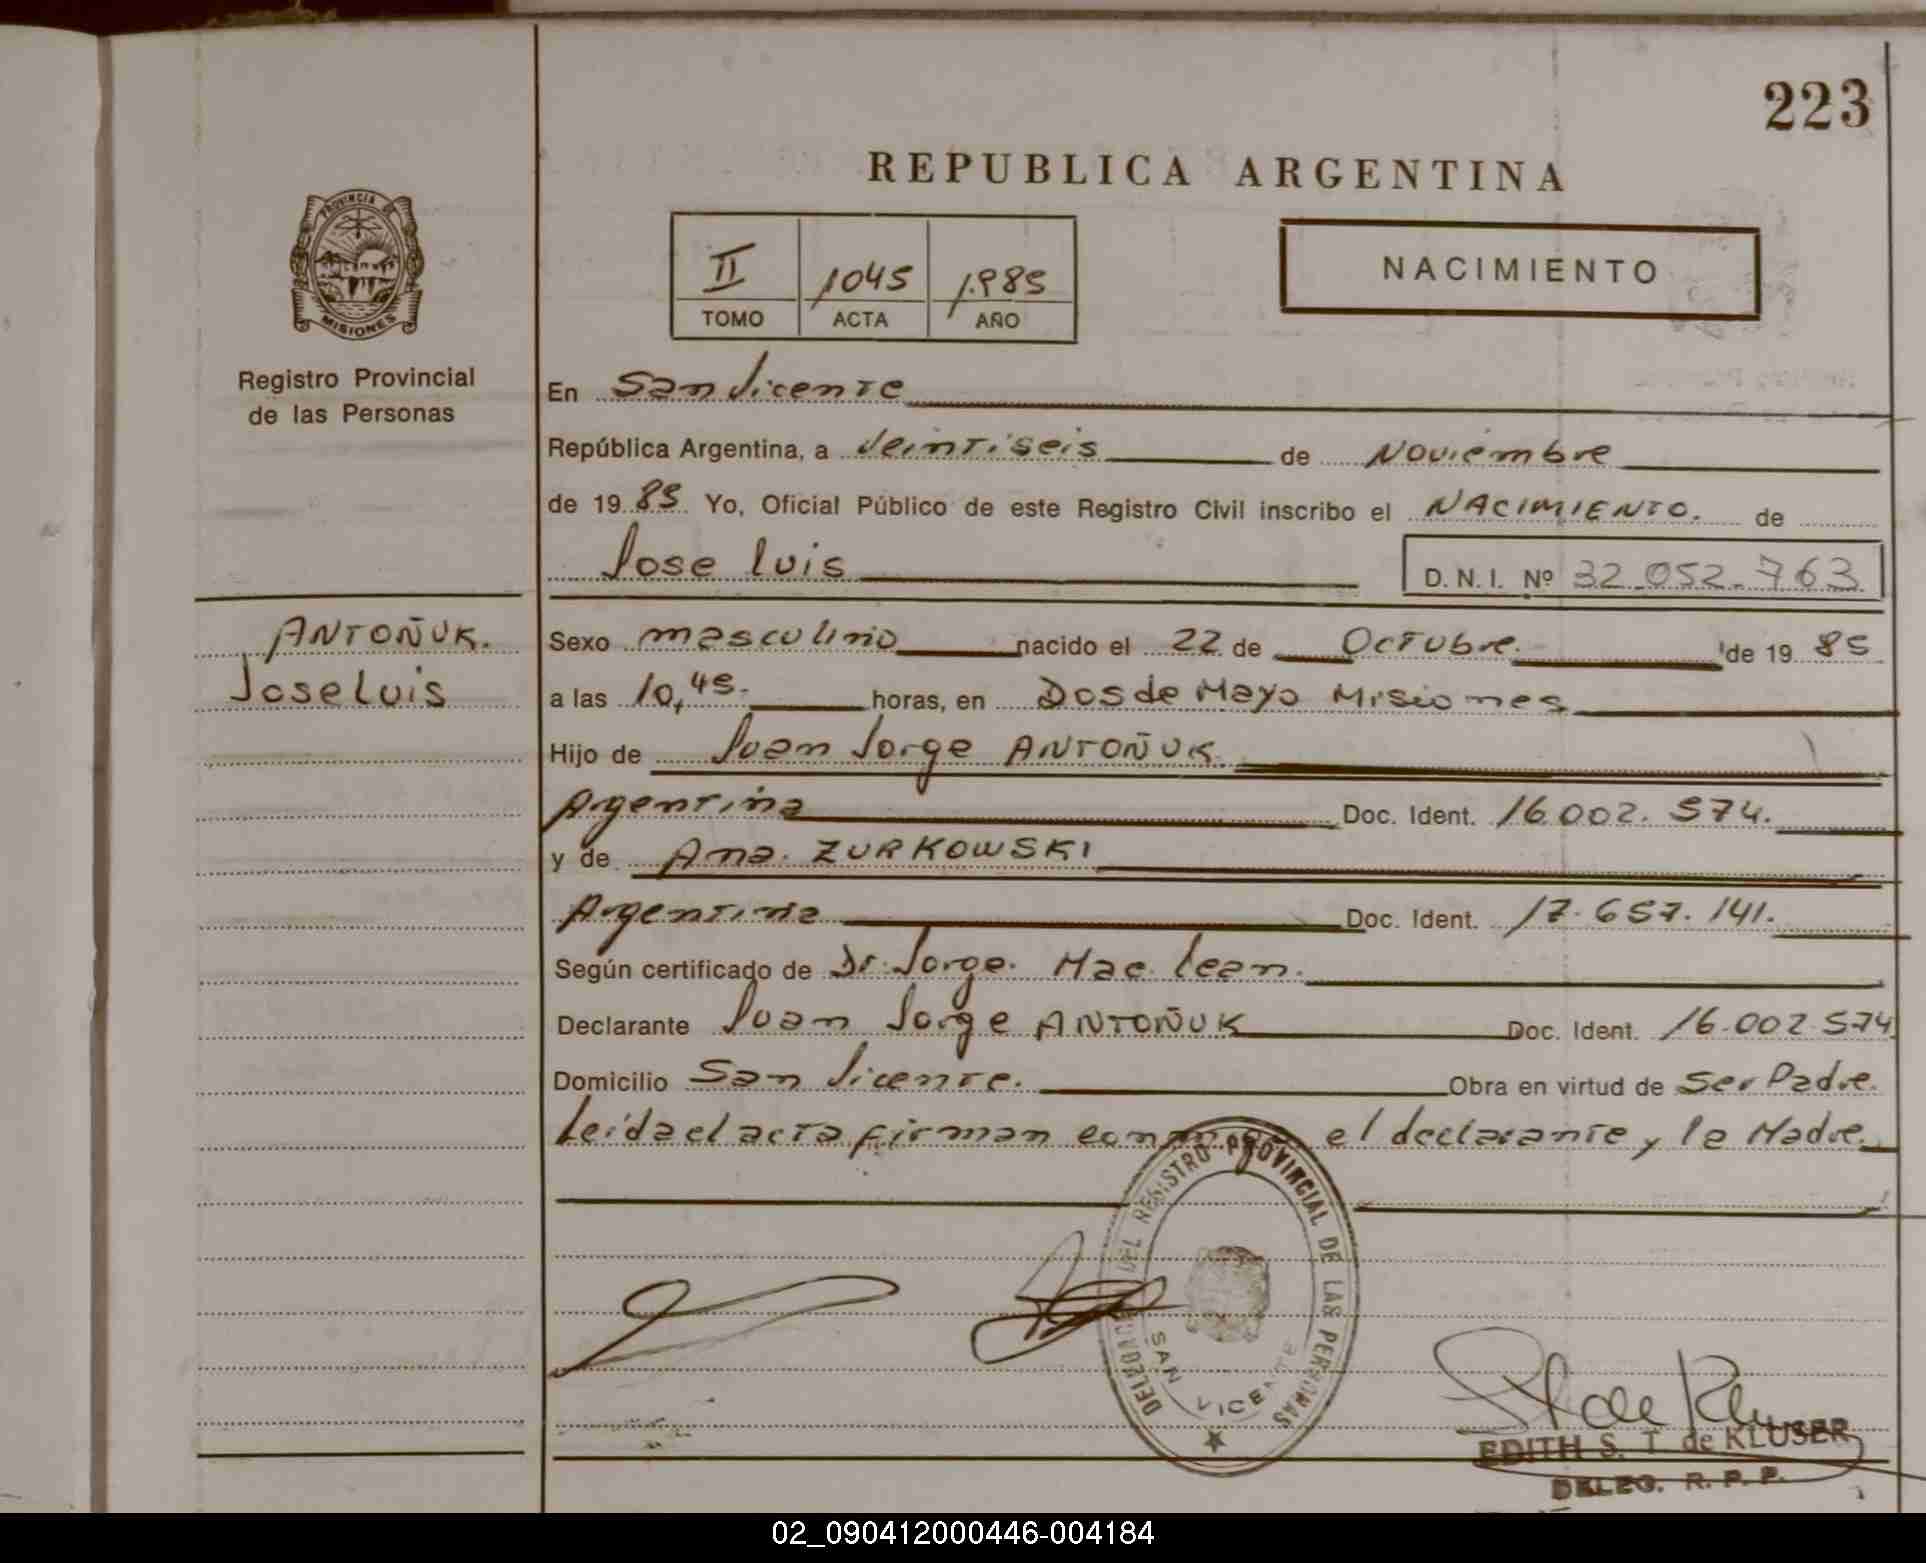 223
REPUBLICA ARGENTINA
PROVINCIA DE
MISIONES
Registro Provincial
de las Personas
II 1045 1.985
TOMO ACTA AÑO
NACIMIENTO
En San Vicente
República Argentina, a Veintiseis de Noviembre
de 19 85 Yo, Oficial Público de este Registro Civil inscribo el NACIMIENTO. de
Jose Luis D. N. I. Nº 32.052.763
ANTOÑUK.
Jose Luis
Sexo masculino nacido el 22 de Octubre. de 19 85
a las 10,45. horas, en Dos de Mayo Misiones
Hijo de Juan Jorge ANTOÑUK.
Argentina Doc. Ident. 16.002.574.
y de Ana. ZURKOWSKI
Argentina Doc. Ident. 17.657.141.
Según certificado de Dr. Jorge. Mac. Lean.
Declarante Juan Jorge ANTOÑUK Doc. Ident. 16.002.574
Domicilio San Vicente. Obra en virtud de Ser Padre.
Leida el acta firman conmigo el declarante y la Madre.
DELEGACION DEL REGISTRO PROVINCIAL DE LAS PERSONAS
SAN VICENTE
EDITH S. T. de KLUSER
DELEG. R. P. P.
02_090412000446-004184